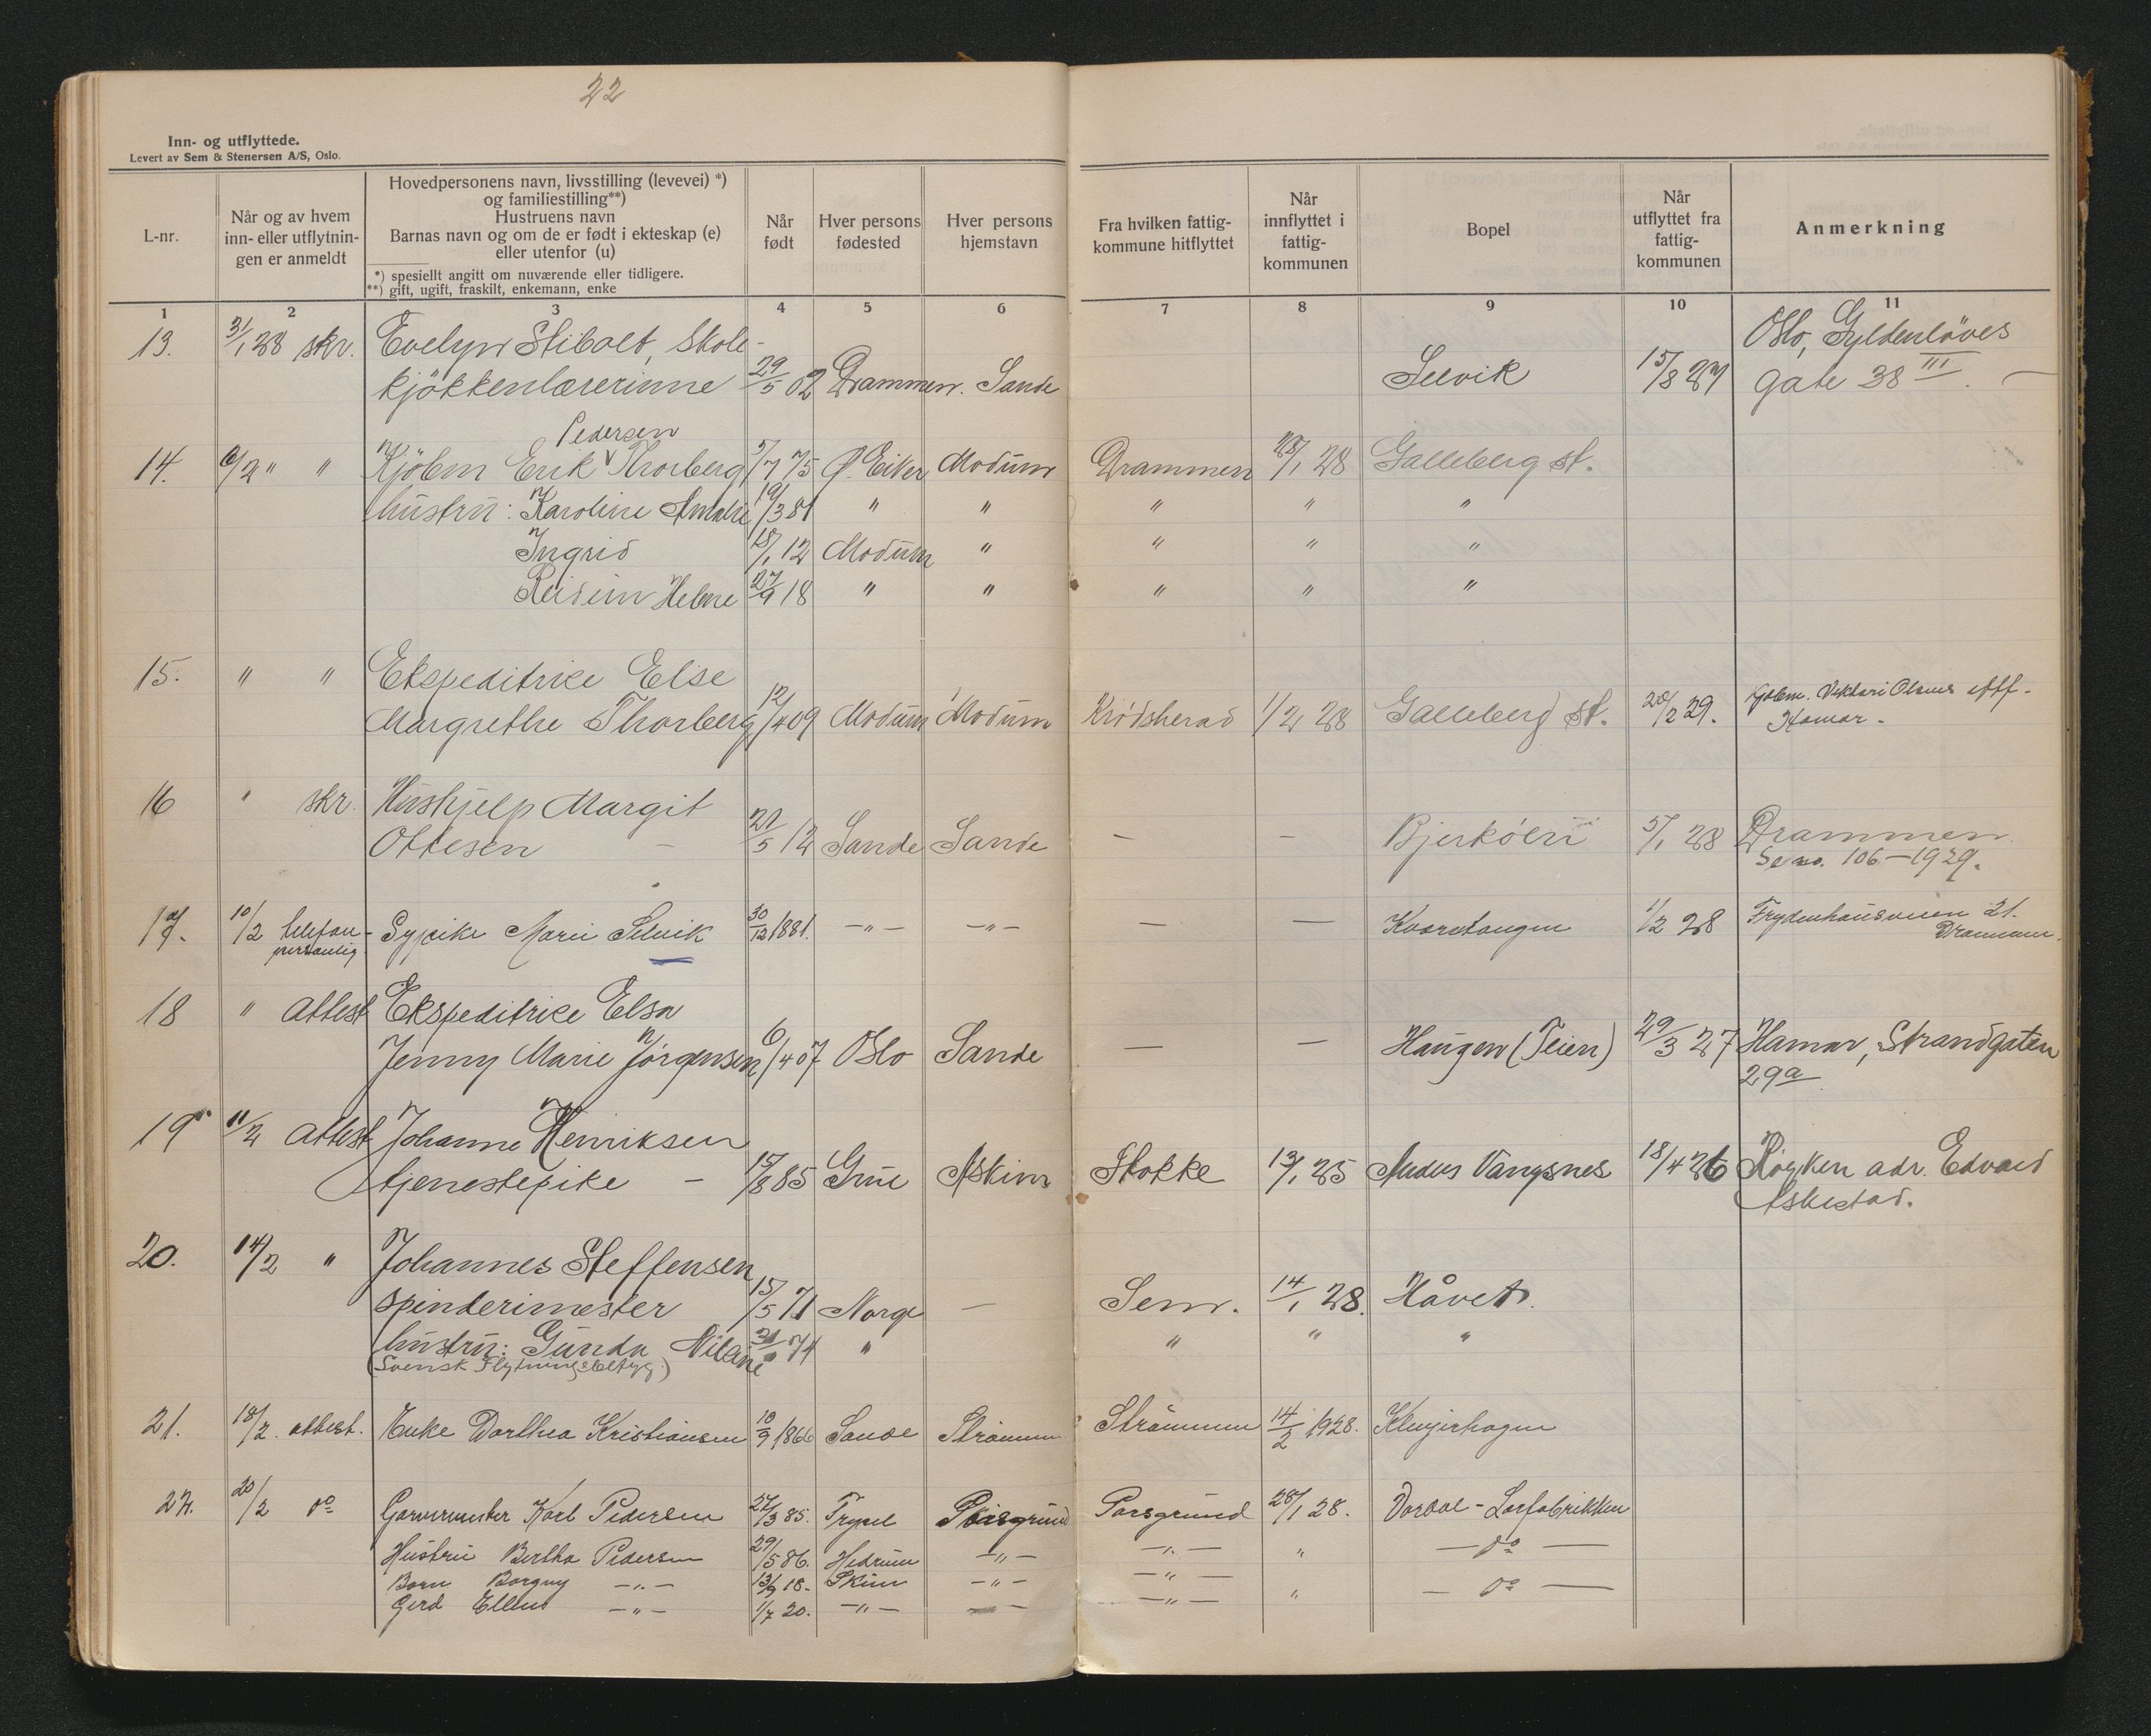 22
Inn- og utflyttede.
Levert av Sem & Stenersen A/S, Oslo.
L-nr.
Når og av hvem
inn- eller utflytnin-
gen er anmeldt
Hovedpersonens navn, livsstilling (levevei) *)
og familiestilling**)
Hustruens navn
Barnas navn og om de er født i ekteskap (e)
eller utenfor (u)
*) spesiellt angitt om nuværende eller tidligere.
**) gift, ugift, fraskilt, enkemann, enke
Når
født
Hver persons
fødested
Hver persons
hjemstavn
Fra hvilken fattig-
kommune hitflyttet
Når
innflyttet i
fattig-
kommunen
Bopel
Når
utflyttet fra
fattig-
kommunen
Anmerkning
1 2 3 4 5 6 7 8 9 10 11
13. 31/1 28 skr. Evelyn Stibolt, Skole- Oslo, Gyldenlöves
kjökkenlærerinne 29/5 02 Drammen. Sande Selvik 15/8 27 gate 38 III. —
Pedersen
14. 6/2 " " Kjöbm Erik V Thorberg 5/7 75 Ø. Eiker Modum Drammen 28/1 28 Galleberg st.
hustru: Karoline Amalie 19/3 81 " " " " "
Ingrid 18/1 12 Modum " " " "
Reidun Helene 27/9 18 " " " " "
15. " " Ekspeditrice Else
Margrethe Thorberg 12/4 09 Modum Modum Krødsherad 1/2 28 Galleberg st. 20/2 29. Kjøbm. Viktor Olsens eftf.
Hamar -
16 " skr. Hushjelp Margit
Ottesen — 21/5 12 Sande Sande — — Bjerkøen 5/1 28 Drammen
Se no. 106 — 1929.
17. 10/2 telefon- Sypike Marie Selvik 30/12 1881. —"— —"— — — Kvaretangen 1/2 28 Frydenhausveien 21.
personlig. Drammen.
18 " attest Ekspeditrice Elsa
Jenny Marie Jørgensen 6/4 07 Oslo Sande — — Haugen (Teien) 29/3 27 Hamar, Strandgaten
29a
19 11/2 attest Johanne Henriksen
tjenestepike — 15/8 85 Grue Askim Stokke 13/1 25 Anders Vangsnes 18/4 26 Røyken adr. Edvard
Askestad.
20. 14/2 " Johannes Steffensen
spinderimester 15/5 71 Norge — Sem. 14/1 28. Håvet.
hustru: Gunda Nilsine 74 " " " "
(Svensk Flytningsbetyg)
21. 18/2. attest. Enke Dorthea Kristiansen 10/9 1866 Sande Strømmen Strømmen 14/2 1928. Klevjerhagen
22. 20/2 do Garvermester Karl Pedersen 27/3 85. Trysil Porsgrund Porsgrund 28/1 28. Dordal - Lærfabrikken
Hustru Bertha Pedersen 29/5 86. Hedrum —"— —"— " — do —
Barn Borgny —"— 13/9 18. Skien —"— —"—
Gerd Ellen —"— 1/7 20. —"— — —"— " — do —